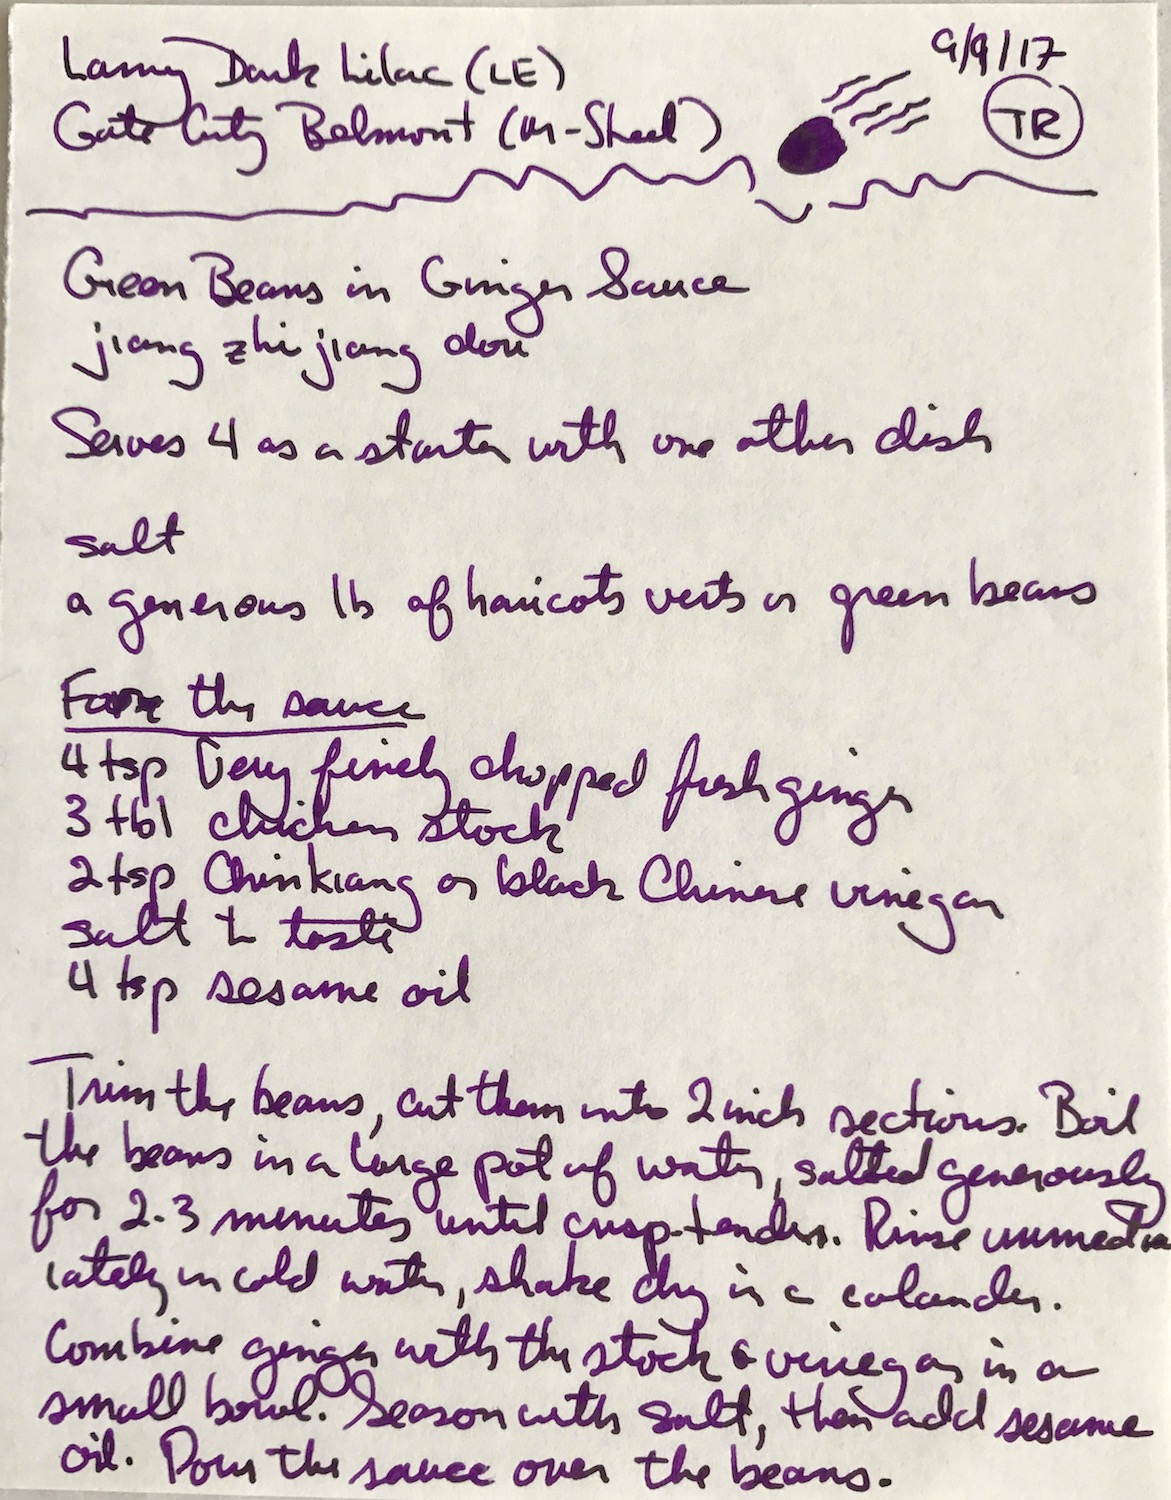 Lamy Dark Lilac (LE)
9/9/17
Gate City Belmont (M-Steel)
TR
Green Beans in Ginger Sauce
jiang zhi jiang dou
Serves 4 as a starter with one other dish
salt
a generous lb of haricots verts or green beans
For the sauce
4 tsp Very finely chopped fresh ginger
3 tbl chicken stock
2 tsp Chinkiang or black Chinese vinegar
salt to taste
4 tsp sesame oil
Trim the beans, cut them into 2 inch sections. Boil
the beans in a large pot of water, salted generously
for 2-3 minutes until crisp-tender. Rinse immed
iately in cold water, shake dry in a colander.
Combine ginger with the stock & vinegar in a
small bowl. Season with salt, then add sesame
oil. Pour the sauce over the beans.